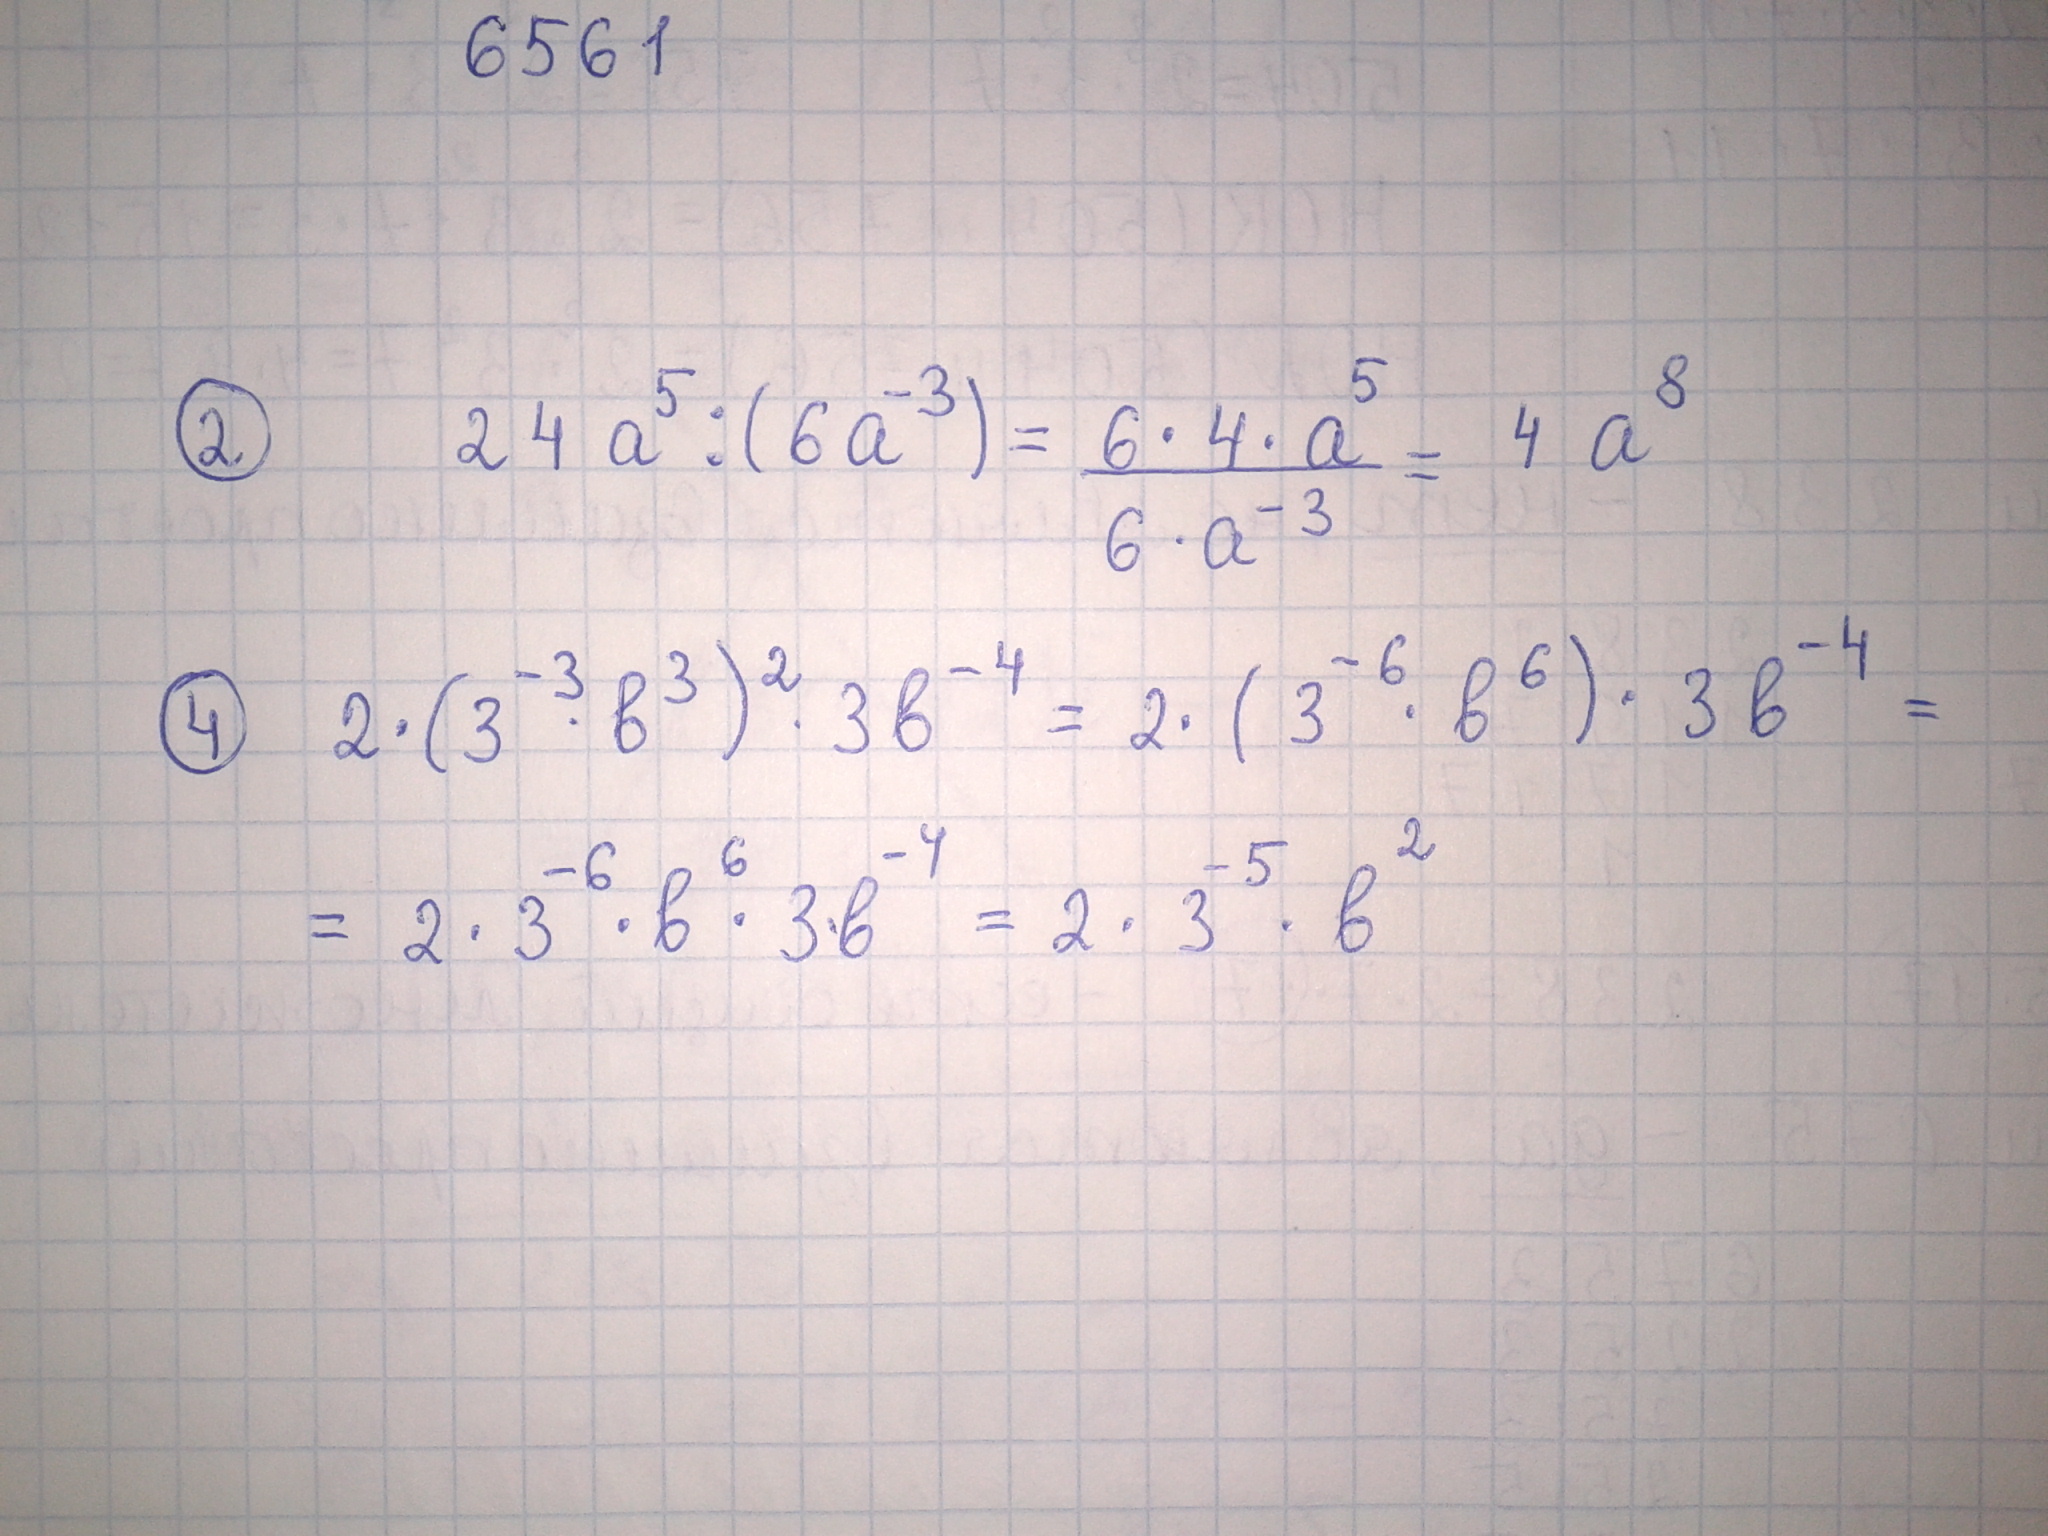 6561
② 24a⁵:(6a⁻³) = (6·4·a⁵)/(6·a⁻³) = 4a⁸
④ 2·(3⁻³·b³)²·3b⁻⁴ = 2·(3⁻⁶·b⁶)·3b⁻⁴ =
= 2·3⁻⁶·b⁶·3·b⁻⁴ = 2·3⁻⁵·b²